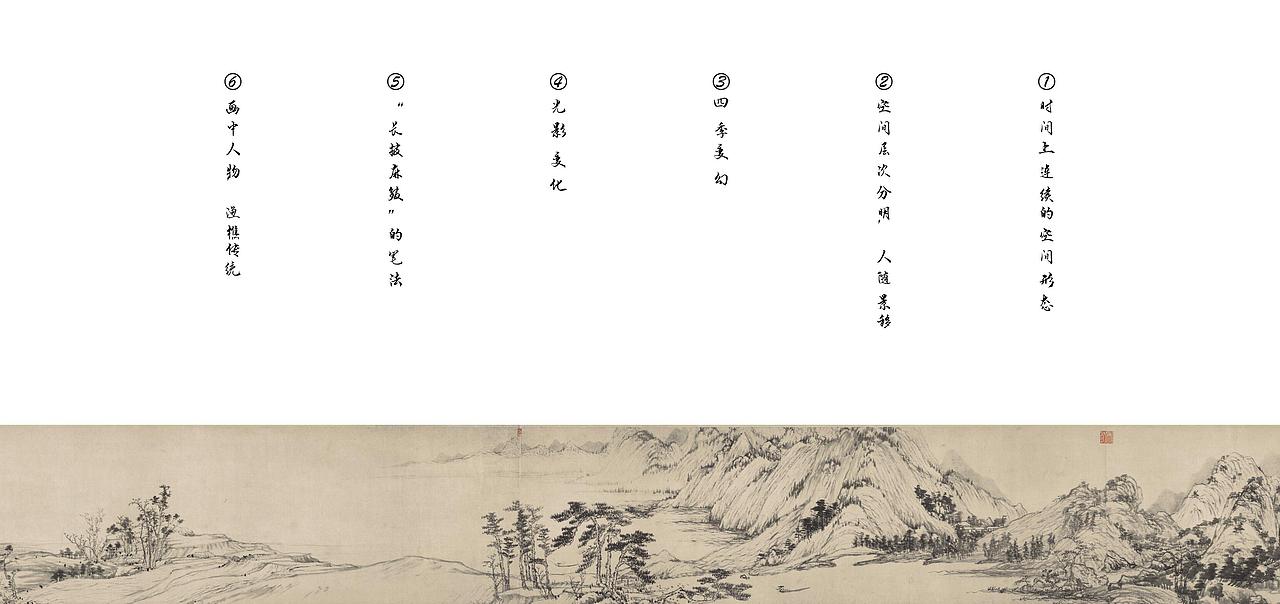 ①时间上连续的空间形态
②空间层次分明，人随景移
③四季变幻
④光影变化
⑤“长披麻皴”的笔法
⑥画中人物 渔樵传统